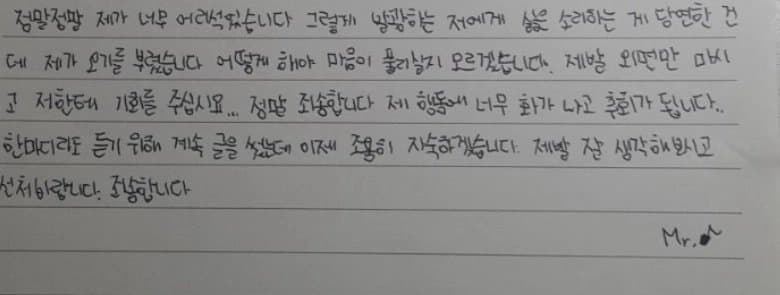 정말정말 제가 너무 어리석었습니다 그렇게 발광하는 저에게 싫은 소리하는 게 당연한 건
데 제가 오기를 부렸습니다 어떻게 해야 마음이 풀리실지 모르겠습니다. 제발 외면만 마시
고 저한테 기회를 주십시요... 정말 죄송합니다 제 행동에 너무 화가 나고 후회가 됩니다..
한마디라도 듣기 위해 계속 글을 썼는데 이제 조용히 자숙하겠습니다. 제발 잘 생각해보시고
선처바랍니다. 죄송합니다
Mr.